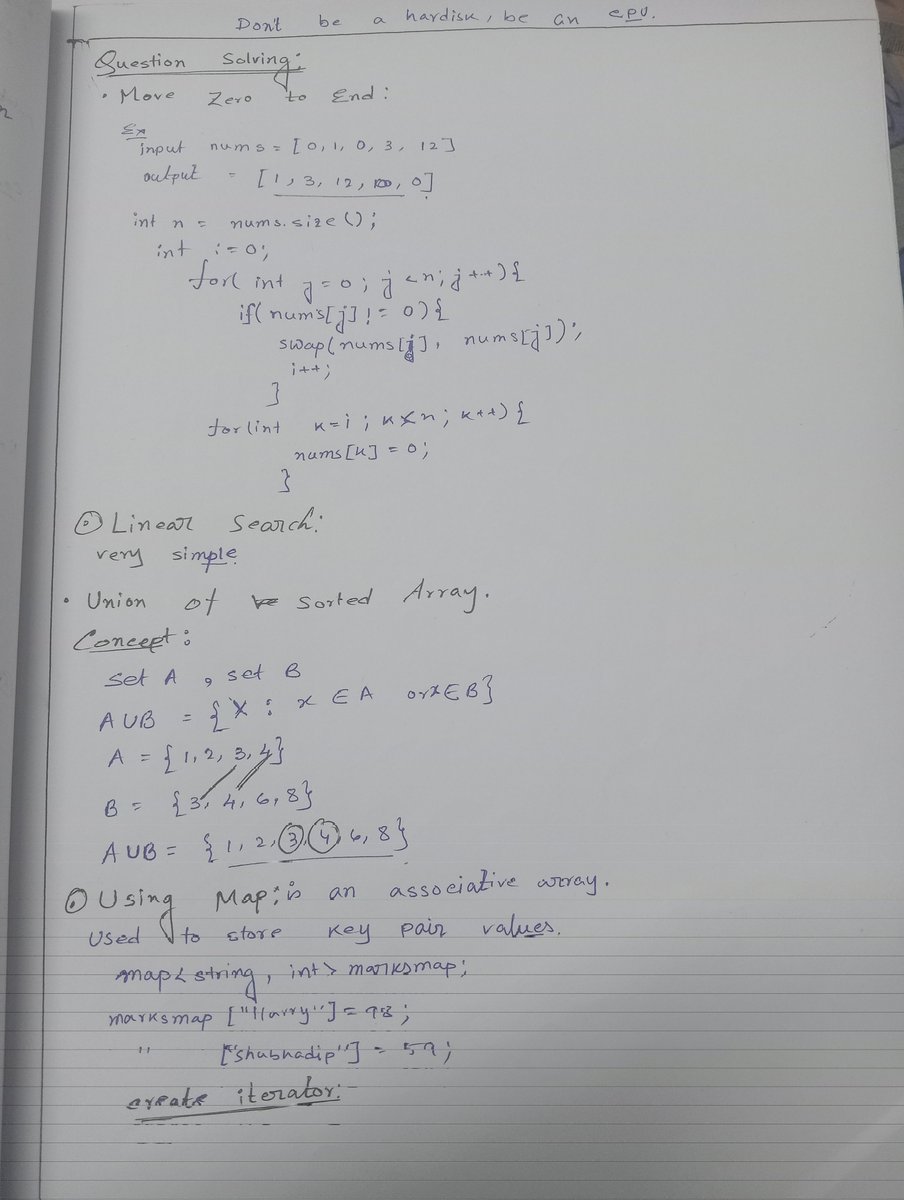 Don't be a hardisk, be an cpu.
Question Solving:
• Move Zero to End:
Ex
input nums = [0, 1, 0, 3, 12]
output = [1, 3, 12, 0, 0]
int n = nums.size();
int i = 0;
for( int j = 0; j < n; j++){
if( nums[j] != 0){
swap( nums[i], nums[j]);
i++;
}
for(int k = i ; k < n; k++){
nums[k] = 0;
}
⊙ Linear Search:
very simple
• Union of Sorted Array.
Concept:
set A , set B
A∪B = {x : x ∈ A or x ∈ B}
A = {1, 2, 3, 4}
B = {3, 4, 6, 8}
A∪B = {1, 2, 3, 4, 6, 8}
⊙ Using Map: is an associative array.
Used to store key pair values.
map< string, int> marksmap;
marksmap ["Harry"] = 98;
" ["Shubhadip"] = 59;
create iterator: